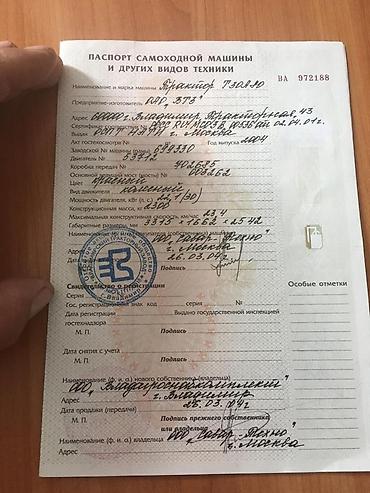 ПАСПОРТ САМОХОДНОЙ МАШИНЫ
И ДРУГИХ ВИДОВ ТЕХНИКИ
ВА 972188
Наименование и марка машины Трактор Т30А80
Предприятие-изготовитель ОАО "ВТЗ"
Адрес 600000 г. Владимир Тракторная, 43
Сертификат РОСС RU. 02.04.01г.
Выдан г. Москва
Акт гостехосмотра № Год выпуска 2004
Заводской № машины (рамы)
Двигатель № 53712
Коробка передач № 402685
Основной ведущий мост (мосты) № 003262
Цвет красный
Вид движителя колёсный
Мощность двигателя, кВт (л. с.) 22,1/(30)
Конструкционная масса, кг 2300
Максимальная конструктивная скорость, км/час 23,4
Габаритные размеры, мм 3373 × 1662 × 2542
Наименование (ф. и. о.) собственника машины
г. Москва
Адрес
26.03.04г
М. П. Подпись
Свидетельство о регистрации
Особые отметки
Серия
Гос. регистрационный знак код серия №
Дата регистрации Выдано государственной инспекцией
гостехнадзора
М. П. Подпись
Дата снятия с учета
М. П. Подпись
Наименование (ф. и. о.) нового собственника (владельца)
ООО "Владпроснабкомплект"
Адрес г. Владимир
Дата продажи (передачи) 25.03.04г
М. П. Подпись прежнего собственника
или владельца
Наименование (ф. и. о.) владельца
Адрес г. Москва